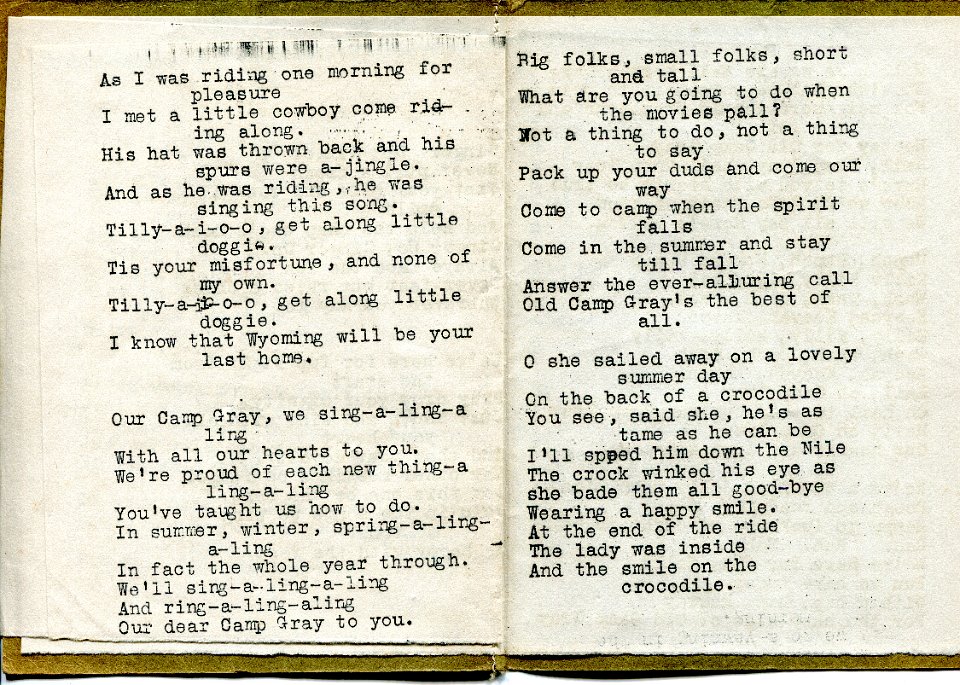 As I was riding one morning for
pleasure
I met a little cowboy come rid-
ing along.
His hat was thrown back and his
spurs were a-jingle.
And as he was riding, he was
singing this song.
Tilly-a-i-o-o, get along little
doggie.
Tis your misfortune, and none of
my own.
Tilly-a-i-o-o, get along little
doggie.
I know that Wyoming will be your
last home.
Our Camp Gray, we sing-a-ling-a
ling
With all our hearts to you.
We're proud of each new thing-a
ling-a-ling
You've taught us how to do.
In summer, winter, spring-a-ling-
a-ling
In fact the whole year through.
We'll sing-a-ling-a-ling
And ring-a-ling-aling
Our dear Camp Gray to you.
Big folks, small folks, short
and tall
What are you going to do when
the movies pall?
Not a thing to do, not a thing
to say
Pack up your duds and come our
way
Come to camp when the spirit
falls
Come in the summer and stay
till fall
Answer the ever-alluring call
Old Camp Gray's the best of
all.
O she sailed away on a lovely
summer day
On the back of a crocodile
You see, said she, he's as
tame as he can be
I'll spped him down the Nile
The crock winked his eye as
she bade them all good-bye
Wearing a happy smile.
At the end of the ride
The lady was inside
And the smile on the
crocodile.